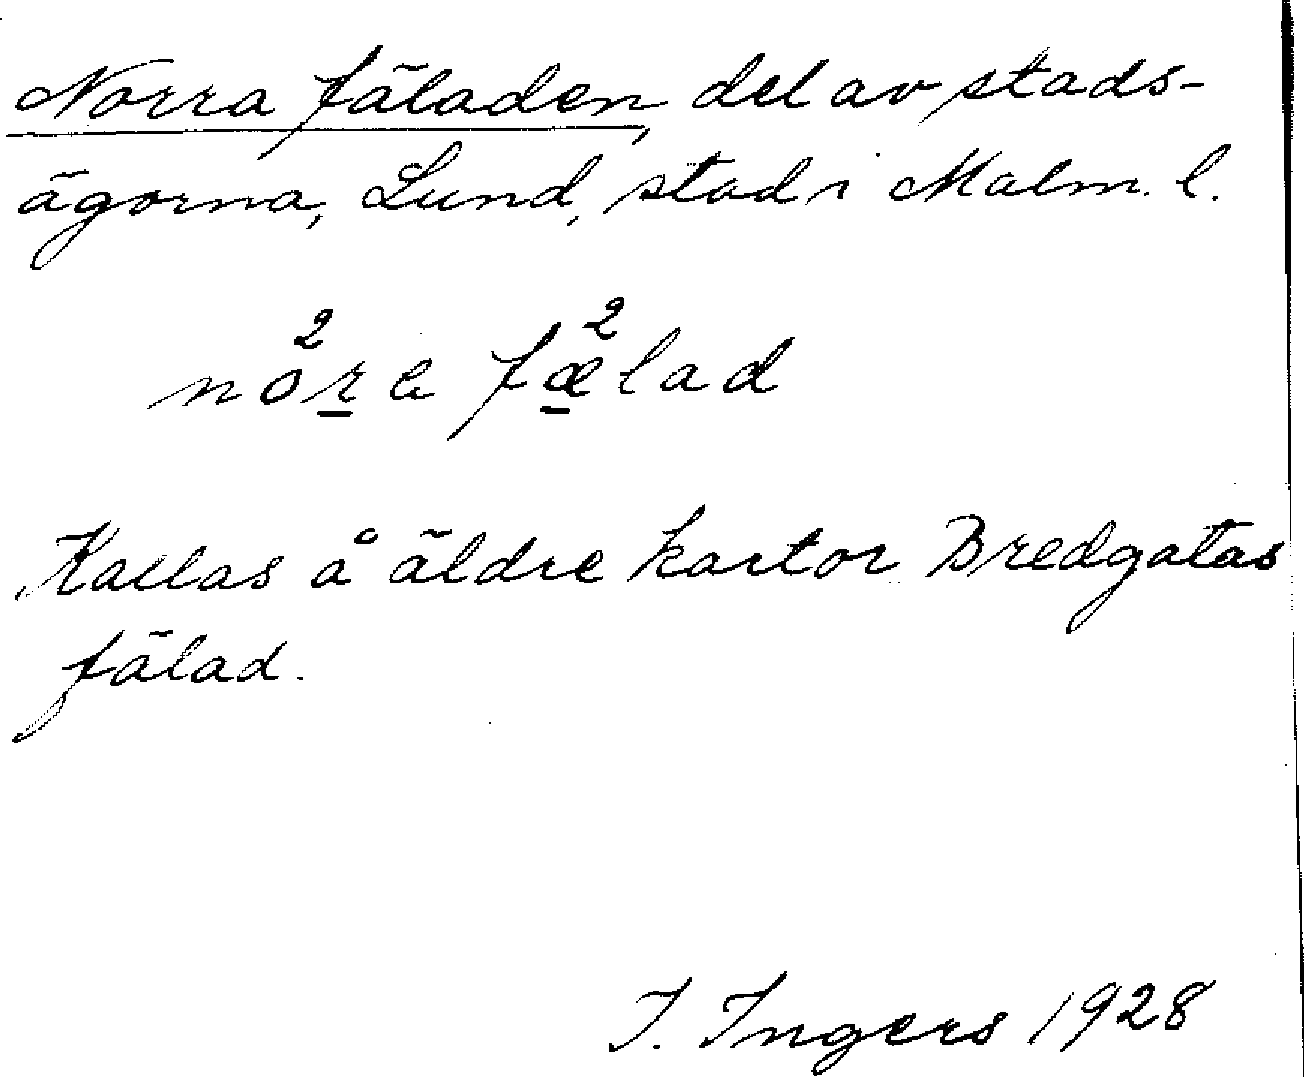 Norra fäladen, del av stads-
ägorna, Lund, stad i Malm. l.
no²ra fæ²lad
Kallas å äldre kartor Bredgatas
fälad.
I. Ingers 1928